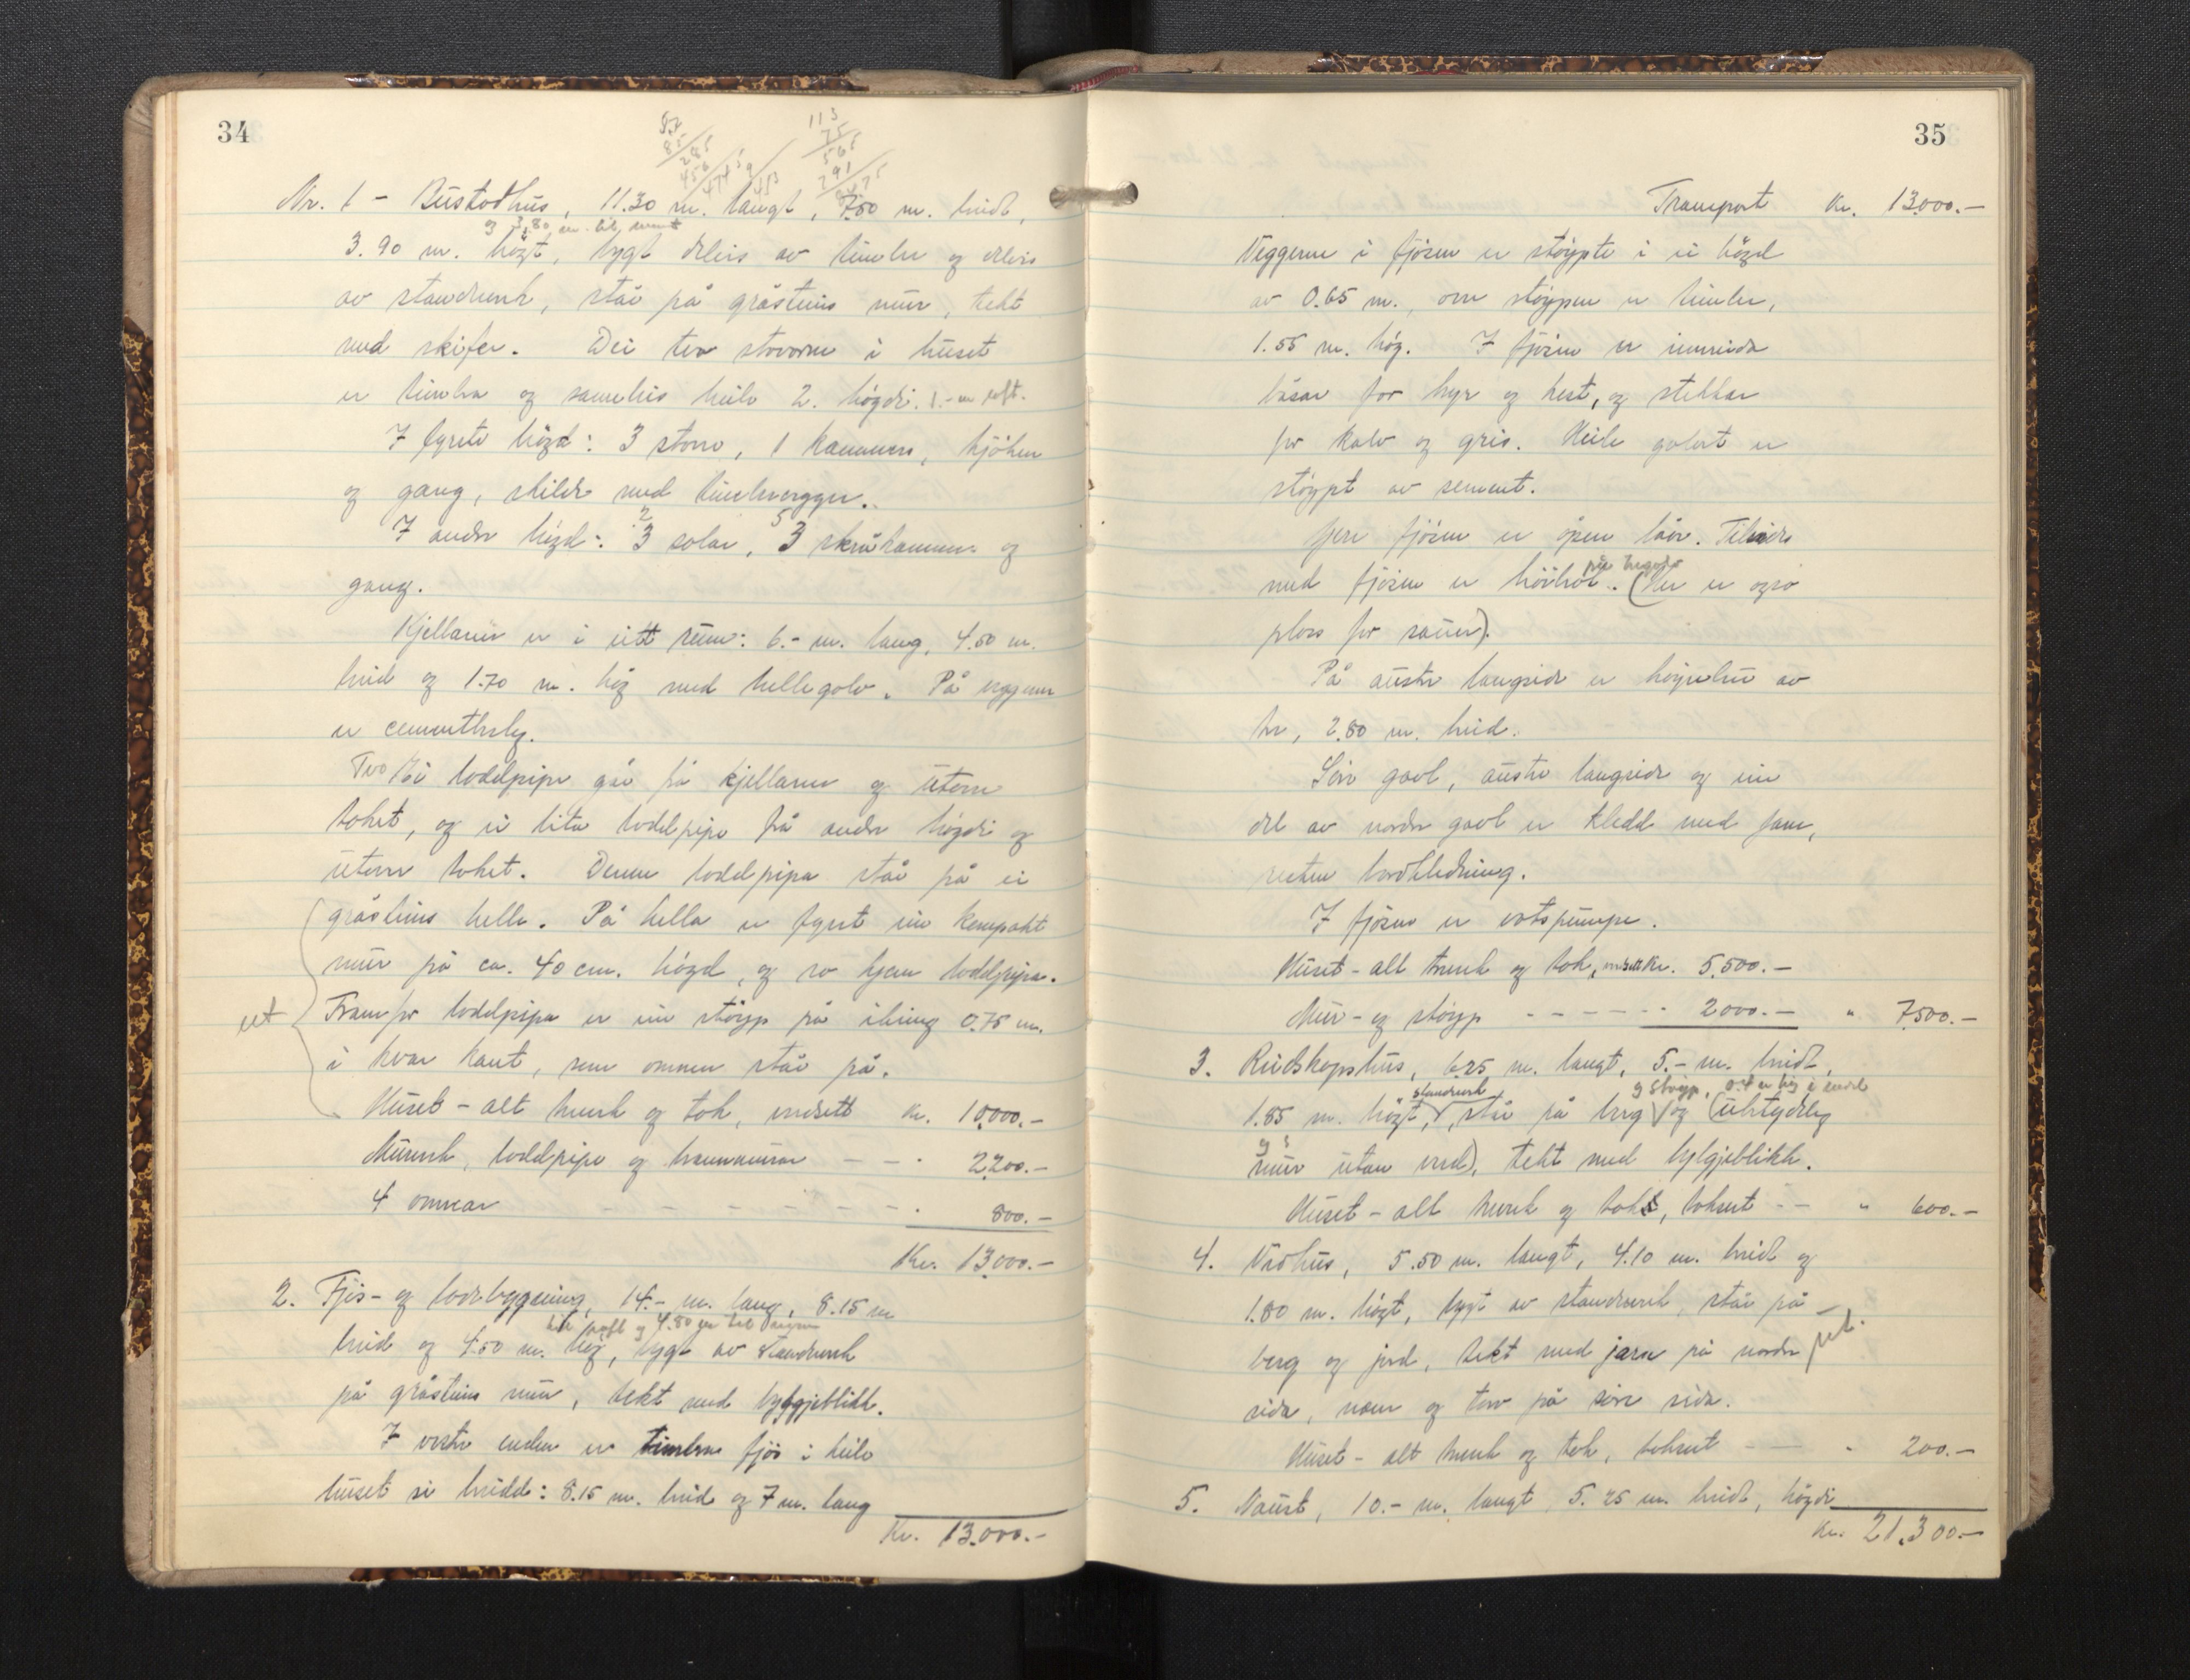 34
Nr. 1 - Bustadhus, 11.30 m. langt, 7.50 m. breidt,
3.90 m. høgt, bygt delvis av timber og delvis
av standverk, står på gråsteins mur, tekt
med skifer. Dei tvo stovorne i huset
er timbra og sameleis heile 2. høgdi.
I fyrste høgd: 3 stove, 1 kammers, kjøken
og gang, skilde med timbervegger.
I andre høgd: 3 salar, 3 skråkammer og
gang.
Kjellaren er i eitt rum: 6.- m. lang, 4.50 m.
breid og 1.70 m. høg med hellegolv. På veggene
er cementbelegg.
Tvo loddpipe går frå kjellaren og utover
taket, og ei lita loddpipe frå andre høgdi og
utover taket. Denne loddpipa står på ei
gråsteins helle. På hella er fyrst ein kompakt
mur på ca. 40 cm. høgd, og so kjem loddpipa.
Framfor loddpipa er ein støyp på ikring 0.75 m.
i kvar kant, som omnen står på.
ut
Huset - alt treverk og tak, verdsett kr. 10.000.-
Murverk, loddpipe og brannmurar - - . 2.200.-
4 omnar - - - - - - . 800.-
Kr. 13.000.-
2. Fjøs- og lødebygning, 14.- m. lang, 8.15 m
breid og 4.50 m. høg, bygt av standverk
på gråsteins mur, tekt med bylgjeblikk.
I vestre enden er timbra fjøs i heile
huset si breidd: 8.15 m. breid og 7 m. lang
Kr. 13.000.-
35
Transport Kr. 13.000.-
Veggerne i fjøsen er støypte i ei høgd
av 0.65 m., over støypen er timber,
1.55 m. høg. I fjøsen er innreida
båsar for kyr og hest, og stellar
for kalv og gris. Heile golvet er
støypt av sement.
Yver fjøsen er open låve. Tilsides
med fjøsen er høyhol. (Her er ogso
plass for sauer).
På austre langside er høgrebu av
tre, 2.80 m. breid.
Søre gavl, austre langside og ein
del av nordre gavl er kledd med jarn,
resten bordkledning.
I fjøsen er vatspumpe.
Huset - alt treverk og tak, verdsett kr. 5.500.-
Mur- og støyp - - - - - - 2000.- " 7.500.-
3. Reidskapshus, 6.25 m. langt, 5.- m. breidt,
standverk
1.85 m. høgt, står på berg og (ubetydeleg
mur utan verd), tekt med bylgjeblikk.
Huset - alt treverk og tak, taksert - - " 600.-
4. Vedhus, 5.50 m. langt, 4.10 m. breidt og
1.80 m. høgt, bygt av standverk, står på
berg og jord, tekt med jarn på nordre
sida, næver og torv på søre sida.
ut.
Huset - alt treverk og tak, taksert - - " 200.-
5. Naust, 10.- m. langt, 5.25 m. breidt, høgdi
Kr. 21.300.-